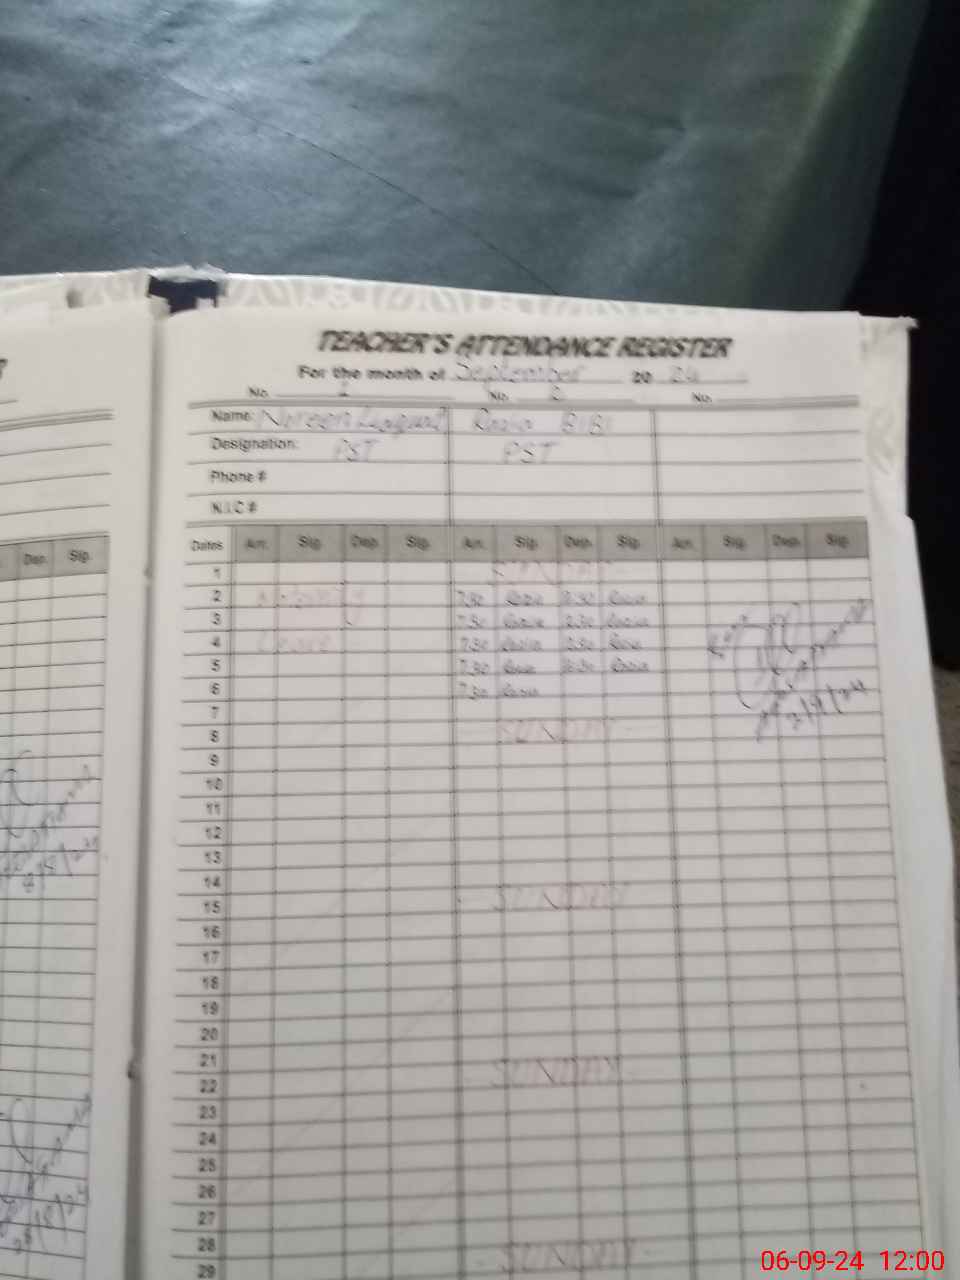 TEACHER'S ATTENDANCE REGISTER
For the month of September 20 24
No. 1 No. 2 No.
Name: Noreen Liaquat Razia BIBI
Designation: PST PST
Phone #
N.I.C #
Dep. Sig.
Dates Arr. Sig. Dep. Sig. Arr. Sig. Dep. Sig. Arr. Sig. Dep. Sig.
1 SUNDAY
2 Maternity 7.30 Razia Razia
3 7.30 Razia Razia
4 Leave 7.30 Razia Razia
5 7.30 Razia Razia
6 7.30 Razia
7
8 SUNDAY
9
10
11
12
13
14
15 SUNDAY
16
17
18
19
20
21
22 SUNDAY
23
24
25
26
27
28
29 SUNDAY
06-09-24 12:00